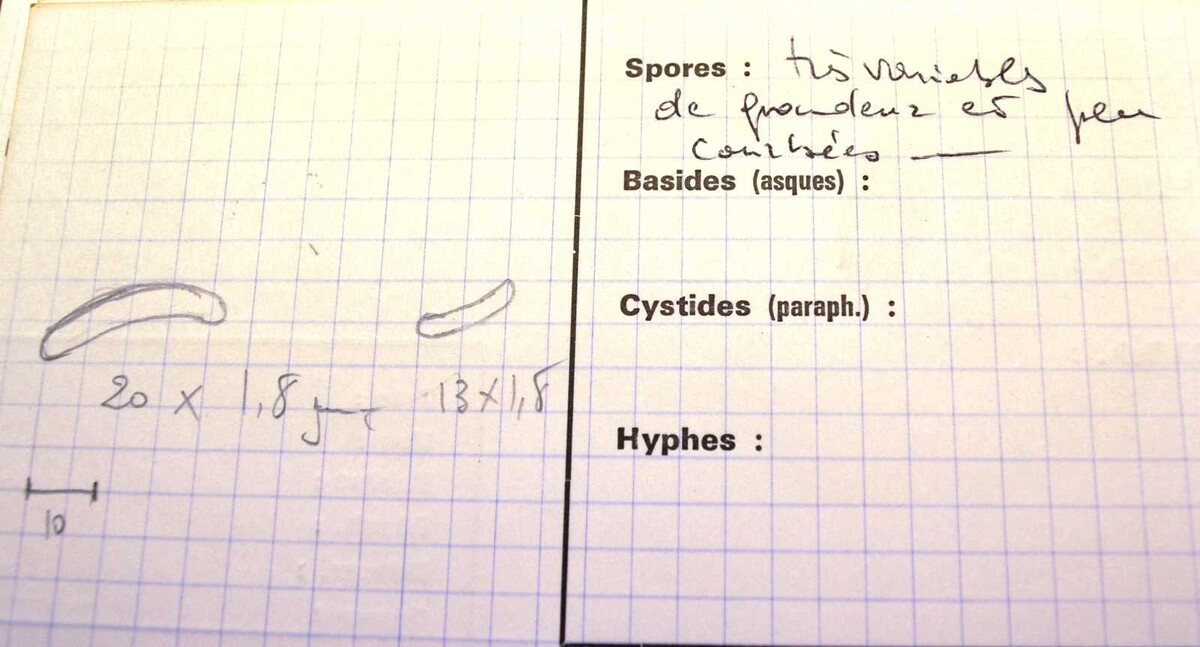 Spores : très variables
de grandeur et peu
courbées —
Basides (asques) :
Cystides (paraph.) :
Hyphes :
20 x 1,8 µm 13 x 1,8
10